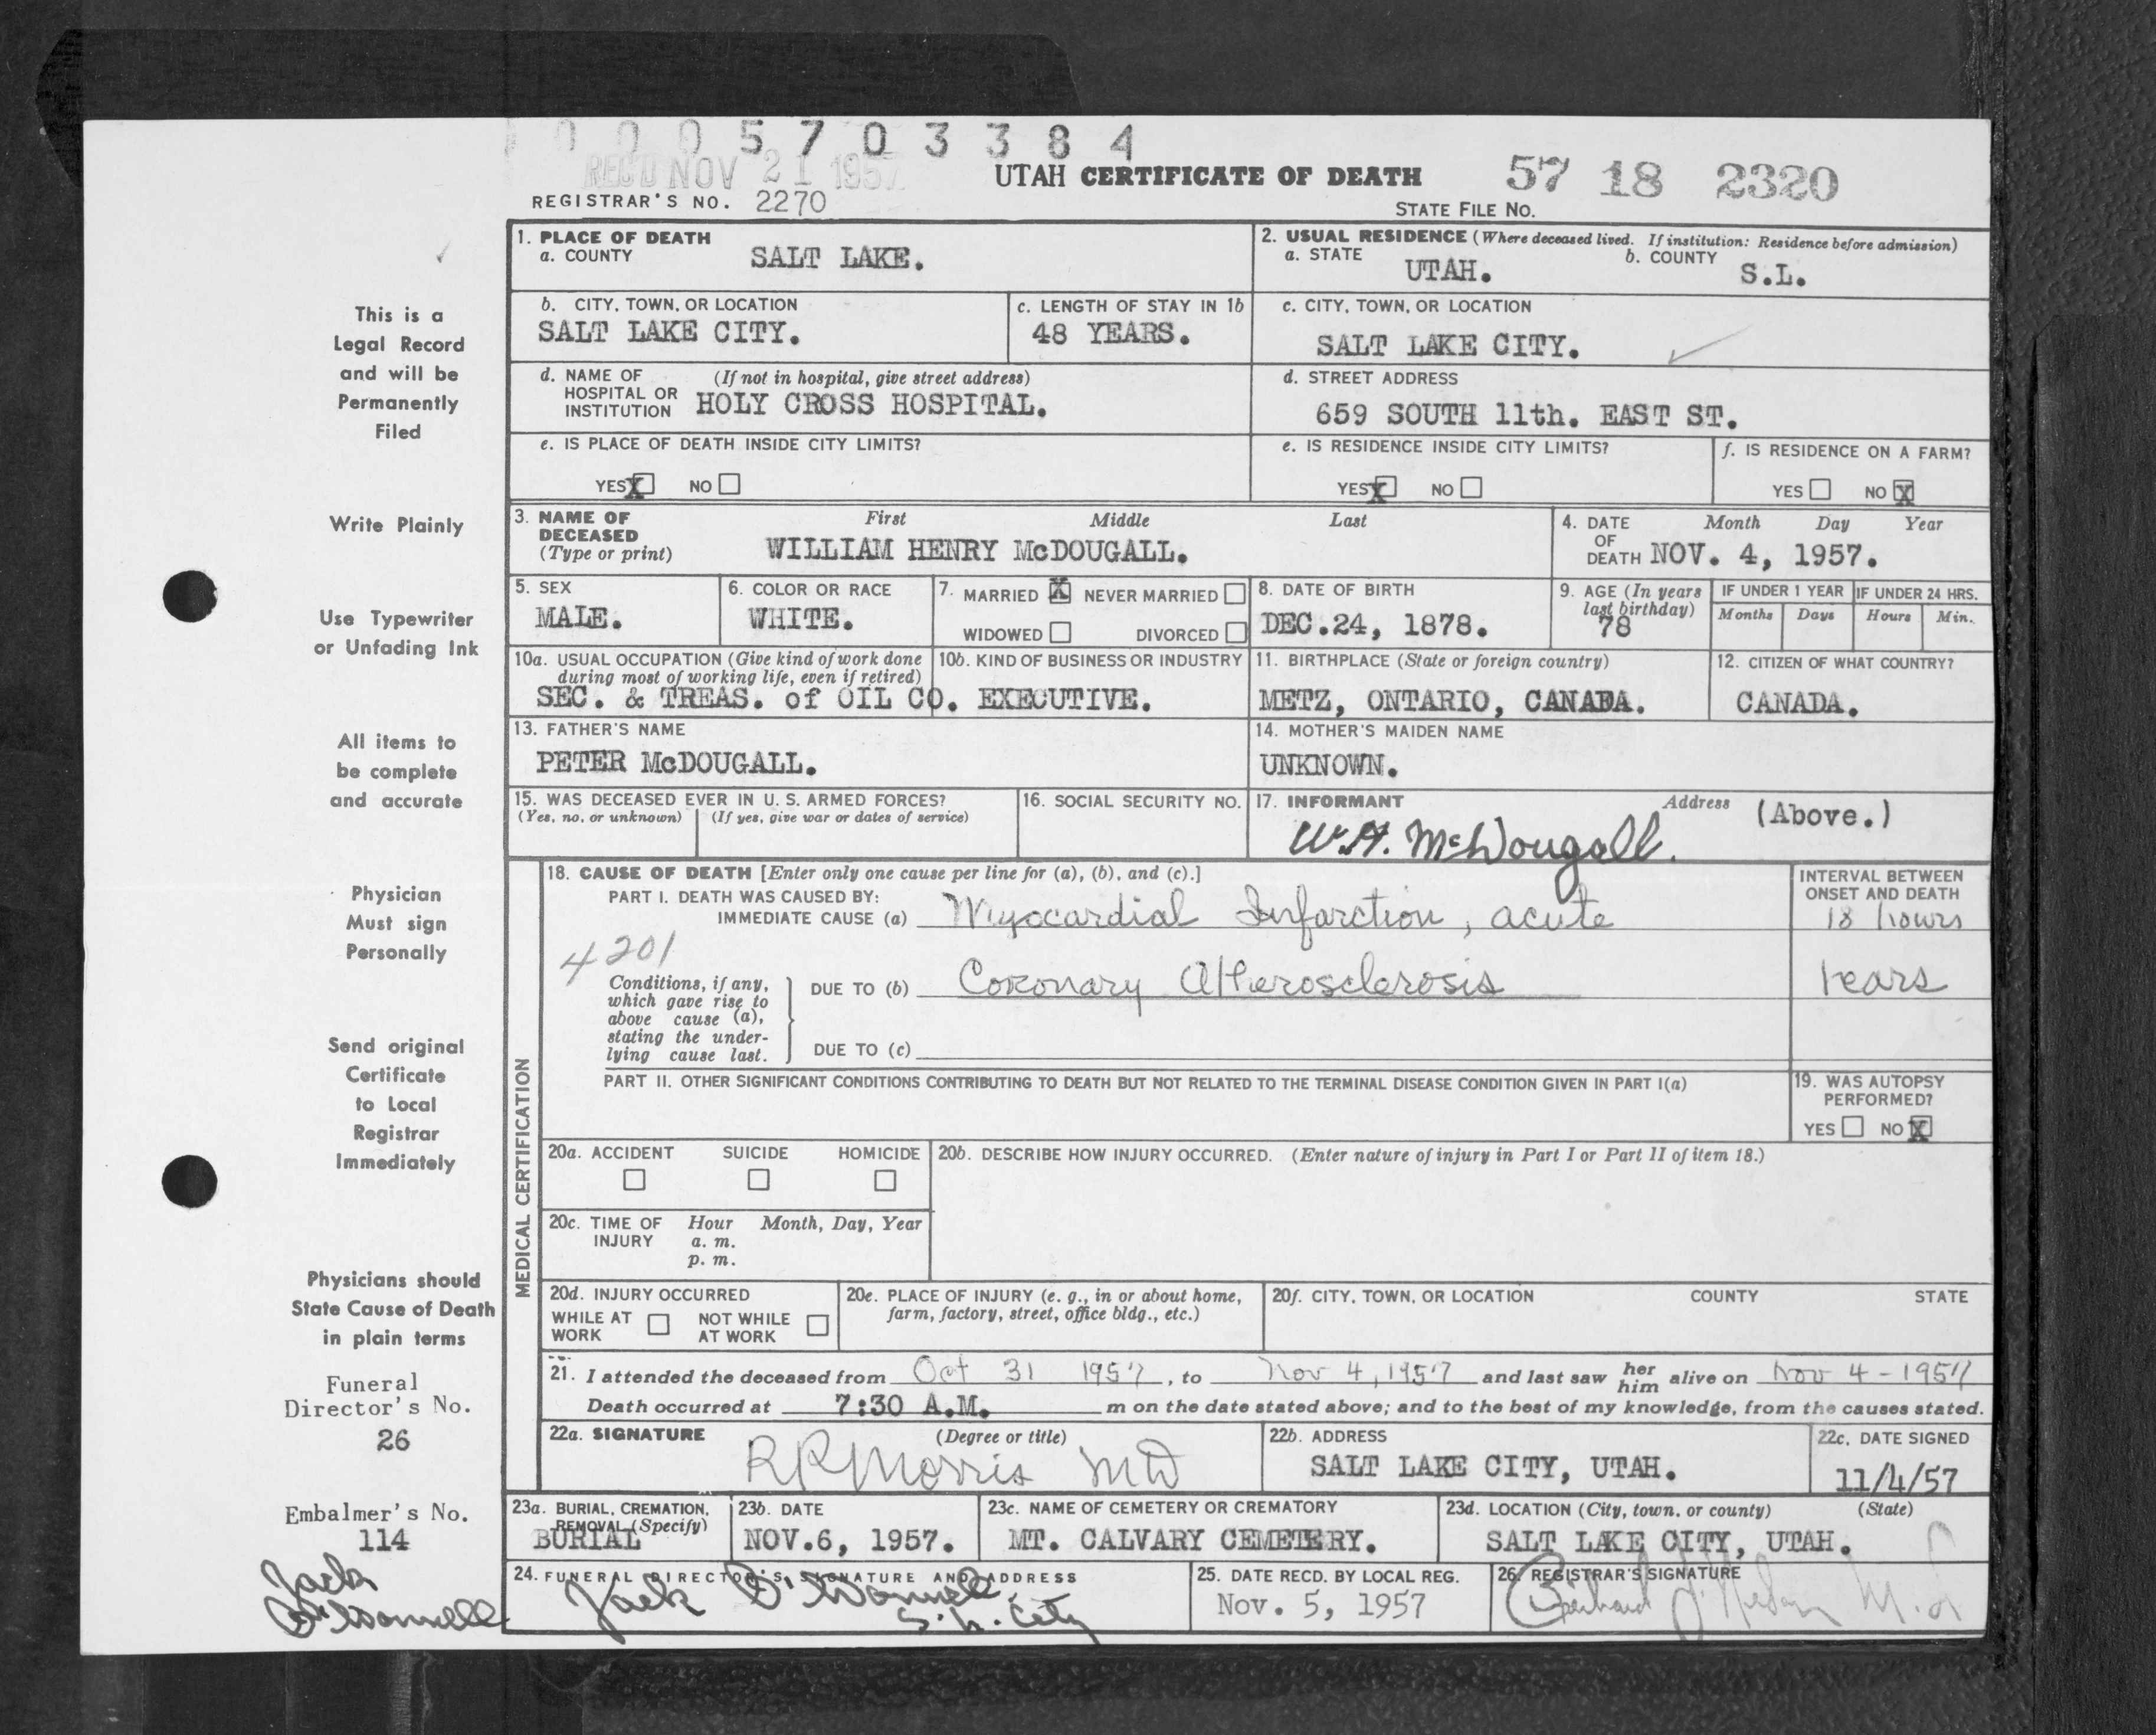 0 0 0 5 7 0 3 3 8 4
REC'D NOV 21 1957
UTAH CERTIFICATE OF DEATH
57 18 2320
REGISTRAR'S NO. 2270
STATE FILE NO.
1. PLACE OF DEATH
a. COUNTY SALT LAKE.
2. USUAL RESIDENCE (Where deceased lived. If institution: Residence before admission)
a. STATE UTAH. b. COUNTY S.L.
b. CITY, TOWN, OR LOCATION
SALT LAKE CITY.
c. LENGTH OF STAY IN 1b
48 YEARS.
c. CITY, TOWN, OR LOCATION
SALT LAKE CITY.
d. NAME OF (If not in hospital, give street address)
HOSPITAL OR
INSTITUTION HOLY CROSS HOSPITAL.
d. STREET ADDRESS
659 SOUTH 11th. EAST ST.
e. IS PLACE OF DEATH INSIDE CITY LIMITS?
YES X NO
e. IS RESIDENCE INSIDE CITY LIMITS?
YES X NO
f. IS RESIDENCE ON A FARM?
YES NO X
3. NAME OF First Middle Last
DECEASED
(Type or print) WILLIAM HENRY McDOUGALL.
4. DATE Month Day Year
OF
DEATH NOV. 4, 1957.
5. SEX
MALE.
6. COLOR OR RACE
WHITE.
7. MARRIED X NEVER MARRIED
WIDOWED DIVORCED
8. DATE OF BIRTH
DEC.24, 1878.
9. AGE (In years
last birthday)
78
IF UNDER 1 YEAR
Months Days
IF UNDER 24 HRS.
Hours Min.
10a. USUAL OCCUPATION (Give kind of work done
during most of working life, even if retired)
10b. KIND OF BUSINESS OR INDUSTRY
SEC. & TREAS. of OIL CO. EXECUTIVE.
11. BIRTHPLACE (State or foreign country)
METZ, ONTARIO, CANADA.
12. CITIZEN OF WHAT COUNTRY?
CANADA.
13. FATHER'S NAME
PETER McDOUGALL.
14. MOTHER'S MAIDEN NAME
UNKNOWN.
15. WAS DECEASED EVER IN U. S. ARMED FORCES?
(Yes, no, or unknown) (If yes, give war or dates of service)
16. SOCIAL SECURITY NO.
17. INFORMANT Address (Above.)
W.H. McDougall.
MEDICAL CERTIFICATION
18. CAUSE OF DEATH [Enter only one cause per line for (a), (b), and (c).]
INTERVAL BETWEEN
ONSET AND DEATH
PART I. DEATH WAS CAUSED BY:
IMMEDIATE CAUSE (a) Myocardial Infarction, acute 18 hours
4201
Conditions, if any,
which gave rise to
above cause (a),
stating the under-
lying cause last.
DUE TO (b) Coronary Atherosclerosis Years
DUE TO (c)
PART II. OTHER SIGNIFICANT CONDITIONS CONTRIBUTING TO DEATH BUT NOT RELATED TO THE TERMINAL DISEASE CONDITION GIVEN IN PART I(a)
19. WAS AUTOPSY
PERFORMED?
YES NO X
20a. ACCIDENT SUICIDE HOMICIDE
20b. DESCRIBE HOW INJURY OCCURRED. (Enter nature of injury in Part I or Part II of item 18.)
20c. TIME OF Hour Month, Day, Year
INJURY a. m.
p. m.
20d. INJURY OCCURRED
WHILE AT NOT WHILE
WORK AT WORK
20e. PLACE OF INJURY (e. g., in or about home,
farm, factory, street, office bldg., etc.)
20f. CITY, TOWN, OR LOCATION COUNTY STATE
21. I attended the deceased from Oct 31 1957, to Nov 4, 1957 and last saw her him alive on Nov 4 - 1957
Death occurred at 7:30 A.M. m on the date stated above; and to the best of my knowledge, from the causes stated.
22a. SIGNATURE (Degree or title)
R R Morris MD
22b. ADDRESS
SALT LAKE CITY, UTAH.
22c. DATE SIGNED
11/4/57
23a. BURIAL, CREMATION,
REMOVAL (Specify)
BURIAL
23b. DATE
NOV.6, 1957.
23c. NAME OF CEMETERY OR CREMATORY
MT. CALVARY CEMETERY.
23d. LOCATION (City, town, or county) (State)
SALT LAKE CITY, UTAH.
24. FUNERAL DIRECTOR'S SIGNATURE AND ADDRESS
Jack O'Donnell
S. L. City
25. DATE RECD. BY LOCAL REG.
Nov. 5, 1957
26. REGISTRAR'S SIGNATURE
M.D
This is a
Legal Record
and will be
Permanently
Filed
Write Plainly
Use Typewriter
or Unfading Ink
All items to
be complete
and accurate
Physician
Must sign
Personally
Send original
Certificate
to Local
Registrar
Immediately
Physicians should
State Cause of Death
in plain terms
Funeral
Director's No.
26
Embalmer's No.
114
Jack
O'Donnell